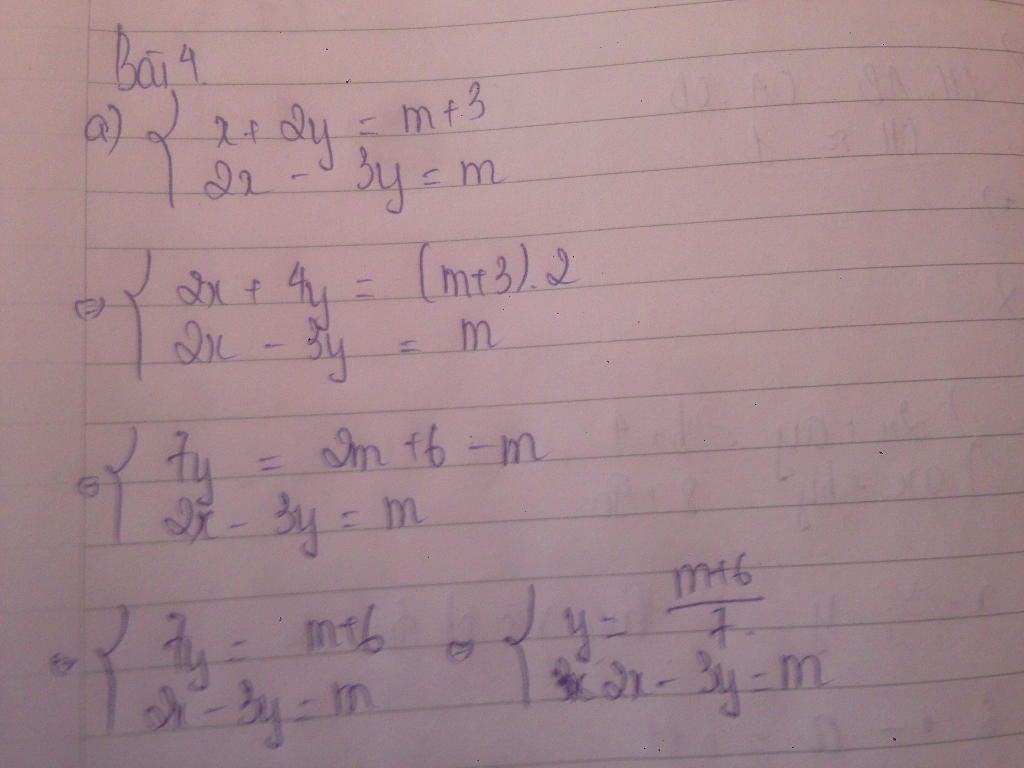 Bài 4.
a) { x + 2y = m+3
2x - 3y = m
⇔ { 2x + 4y = (m+3).2
2x - 3y = m
⇔ { 7y = 2m + 6 - m
2x - 3y = m
⇔ { 7y = m+6 ⇔ { y = \frac{m+6}{7}
2x - 3y = m 2x - 3y = m